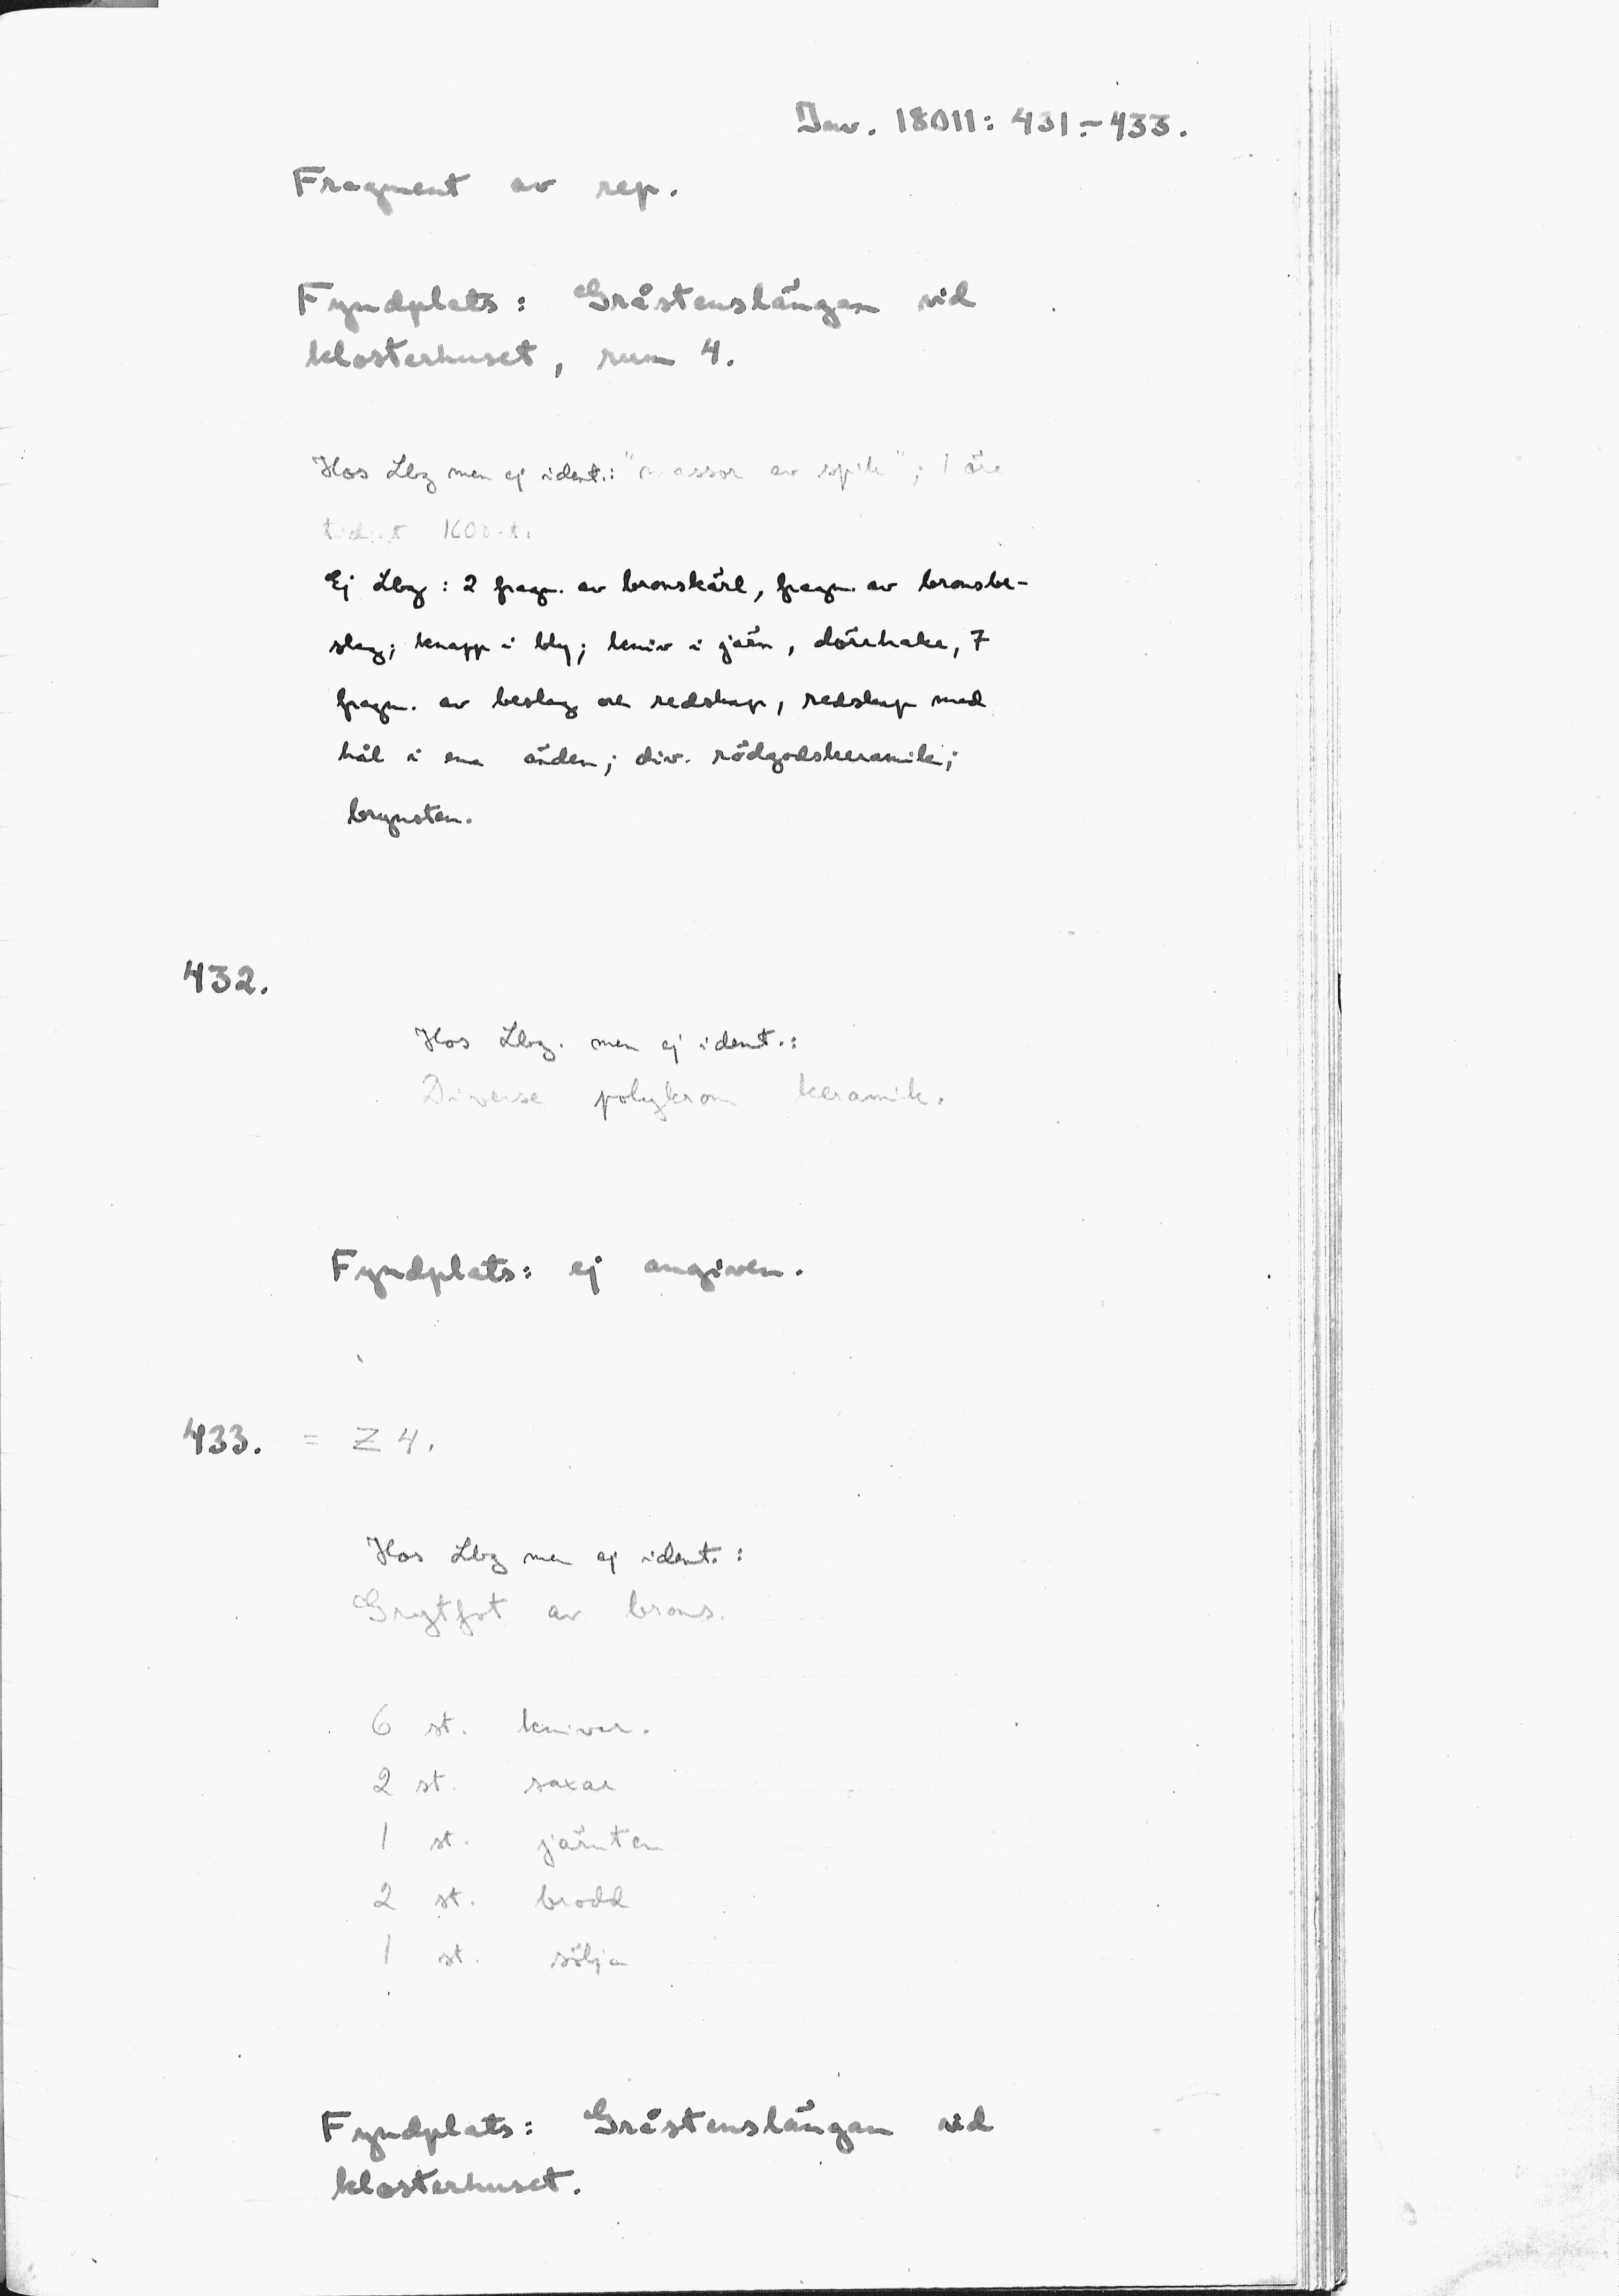 Inv. 18011: 431.-433.
Fragment av rep.
Fyndplats: Gråstenslängan vid
klosterhuset, rum 4.
Hos Lbg men ej ident.: "massor av spik"; 1 öre
tidigt 1600-t.
Ej Lbg: 2 fragm. av bronskärl, fragm. av bronsbe-
slag; knapp i bly; kniv i järn, dörrhake, 7
fragm. av beslag och redskap, redskap med
hål i ena änden; div. rödgodskeramik;
brynsten.
432.
Hos Lbg. men ej ident.:
Diverse polykrom keramik.
Fyndplats: ej angiven.
433. = Z 4.
Hos Lbg men ej ident.:
Grytfot av brons.
6 st. knivar.
2 st. saxar
1 st. järnten
2 st. brodd
1 st. sölja
Fyndplats: Gråstenslängan vid
klosterhuset.